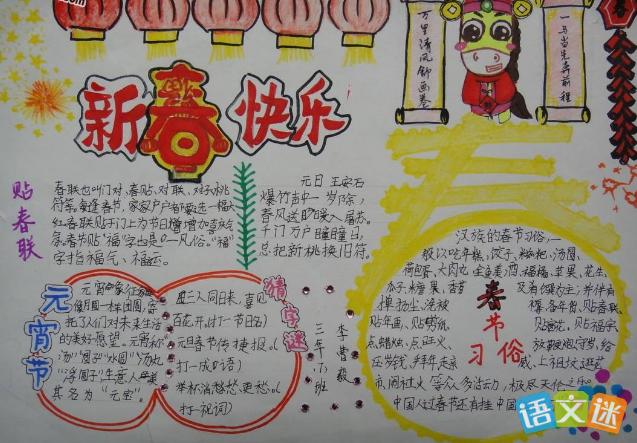 新春快乐
万里清风铺画卷
一马当先奔前程
贴春联
春联也叫门对、春贴、对联、对子、桃
符等，每逢春节，家家户户都要选一幅大
红春联贴于门上，为节日增加喜庆气
氛。春节贴“福”字也是
字指福气、福运。
元日 王安石
爆竹声中一岁除，
春风送暖入屠苏。
千门万户曈曈日，
总把新桃换旧符。
元宵节
元宵象征
像月圆一样团圆，寄
托了人们对未来生活
的美好愿望。元宵称
汤
浮圆子”生意人
其名为“元宝”。
猜字谜
三人同日来，喜见
百花开。(打一节日名)
元旦春节传捷报。(
打一成语)
举杯消愁愁更愁。(
打一祝词)
三年
班
李
毅
春
春节习俗
汉族的春节习俗，一
般以吃年糕、饺子、糍粑、汤圆、
荷包蛋、大肉丸、全鱼、美酒、福橘、苹果、花生、
瓜子、糖果、香茗
贴年画、
贴春联
点蜡烛、点旺火、
放鞭炮、守岁、给
压岁钱、拜年、走亲
戚、上祖坟、逛花
市、闹社火等众多活动，极尽天伦之乐。
中国人过春节还有挂
语文迷